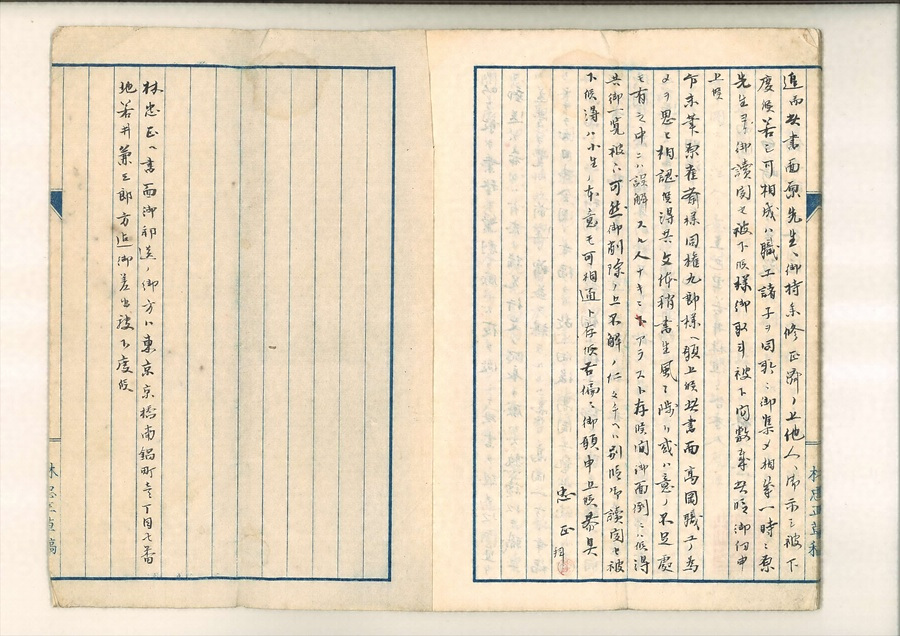 追而此書面原先生へ御持参修正済ノ上他人へ御示シ被下
度候若シ可相成ハ職工諸子ヲ同題ニ御集メ相成一時ニ原
先生ヨリ御読聞セ被下候様御取斗被下
上候
乍末筆原雀斎様同権九郎様ヘ願上候此書面高岡職工ノ為
メヲ思ヒ相認候得共文体稍書生風ニ陥リ或ハ意ノ不足処
モ有之中ニハ誤解スル人ナキニトアラスト存候間御面倒ニハ候得
共御一覧被下可然御削除ノ上不解ノ仁ヘハ別段御読聞セ被
下候得ハ小生ノ本意モ可相通ト存候右偏ニ御願申上候恭具
忠正拝
林忠正ヘ書面御郵送ノ御方ハ東京京橋南鍋町壱丁目七番
地若井兼三郎方迄御差出被下度候
林忠正草稿
林忠正草稿